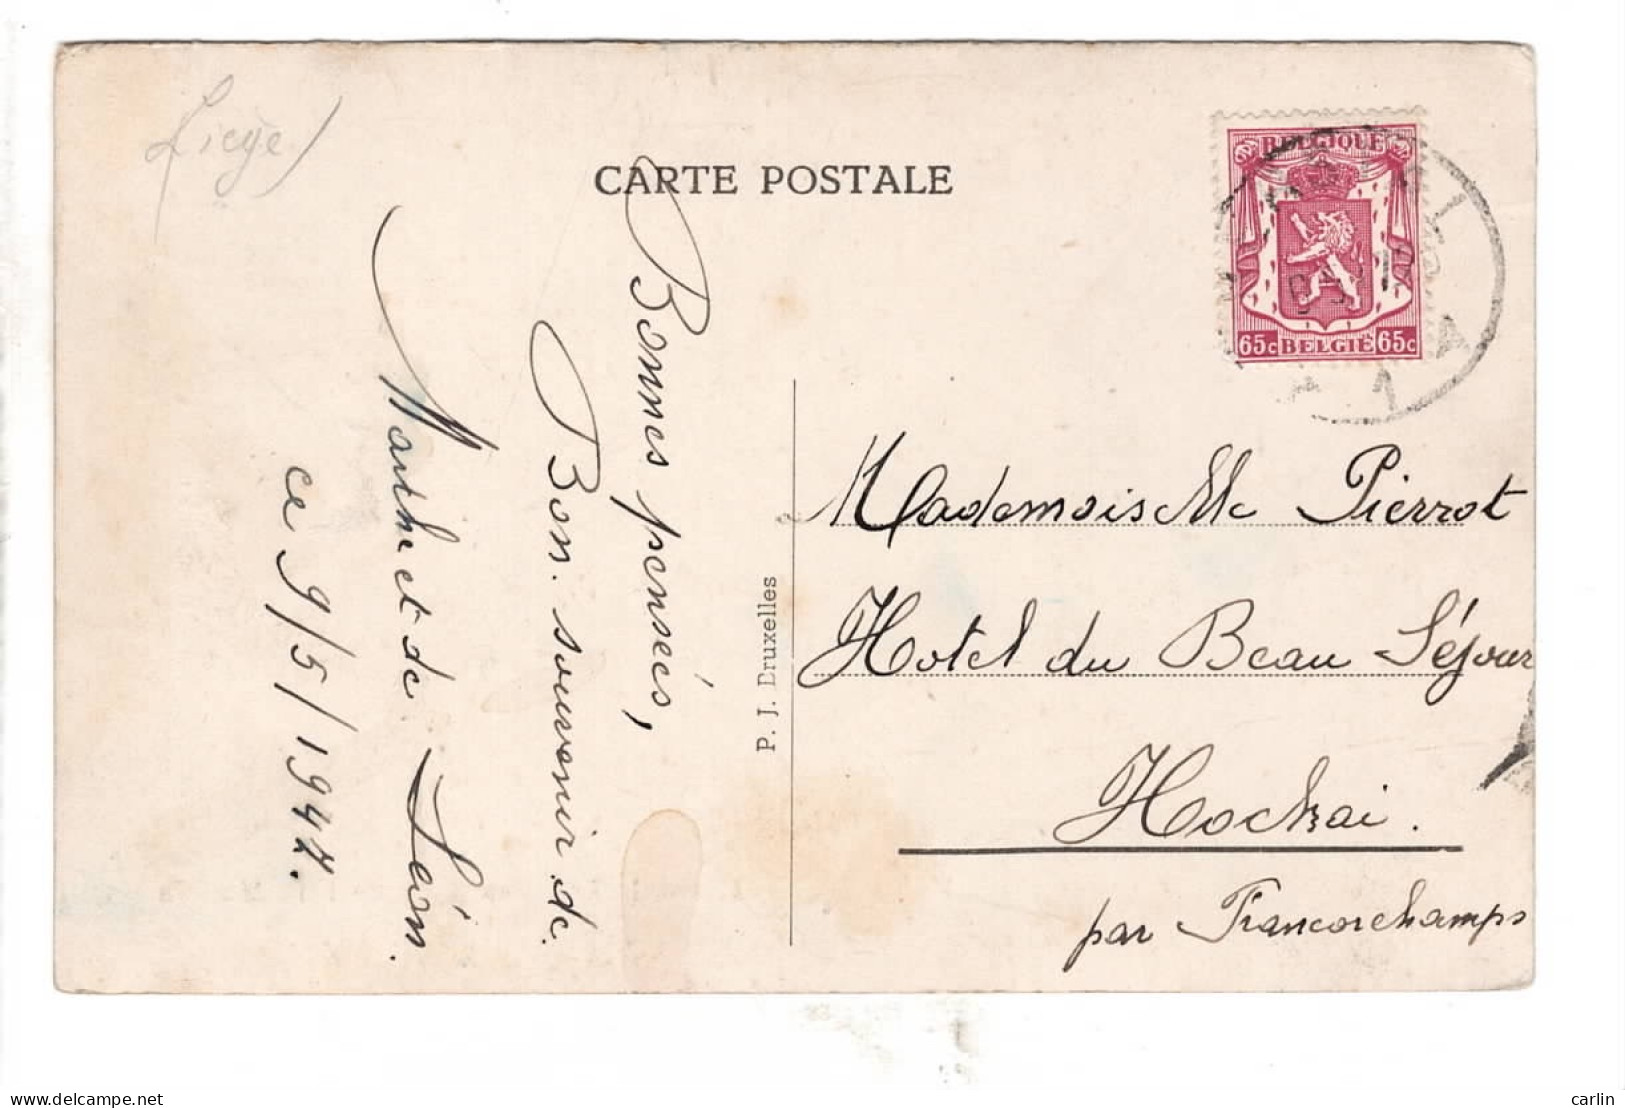 Liège
CARTE POSTALE
BELGIQUE
65c BELGIË 65c
Bonnes pensées,
Bon souvenir de
Marthe et de Léon.
ce 9/5/1944.
P. I. Bruxelles
Mademoiselle Pierrot
Hotel du Beau Séjour
Hockai.
par Francorchamps
delcampe.net
carlin